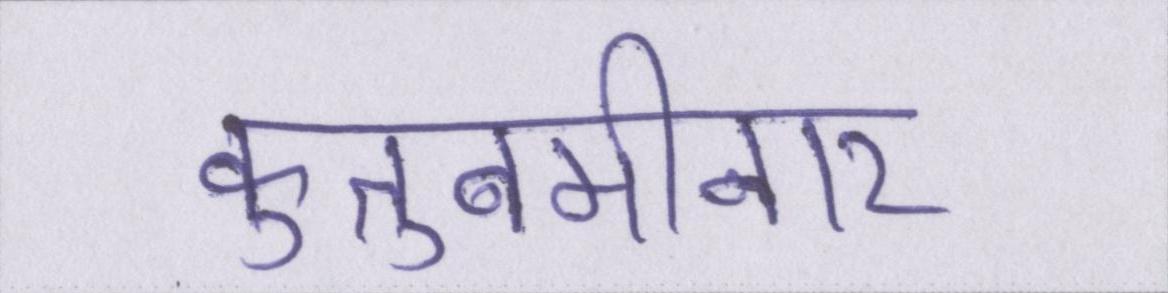 कुतुबमीनार